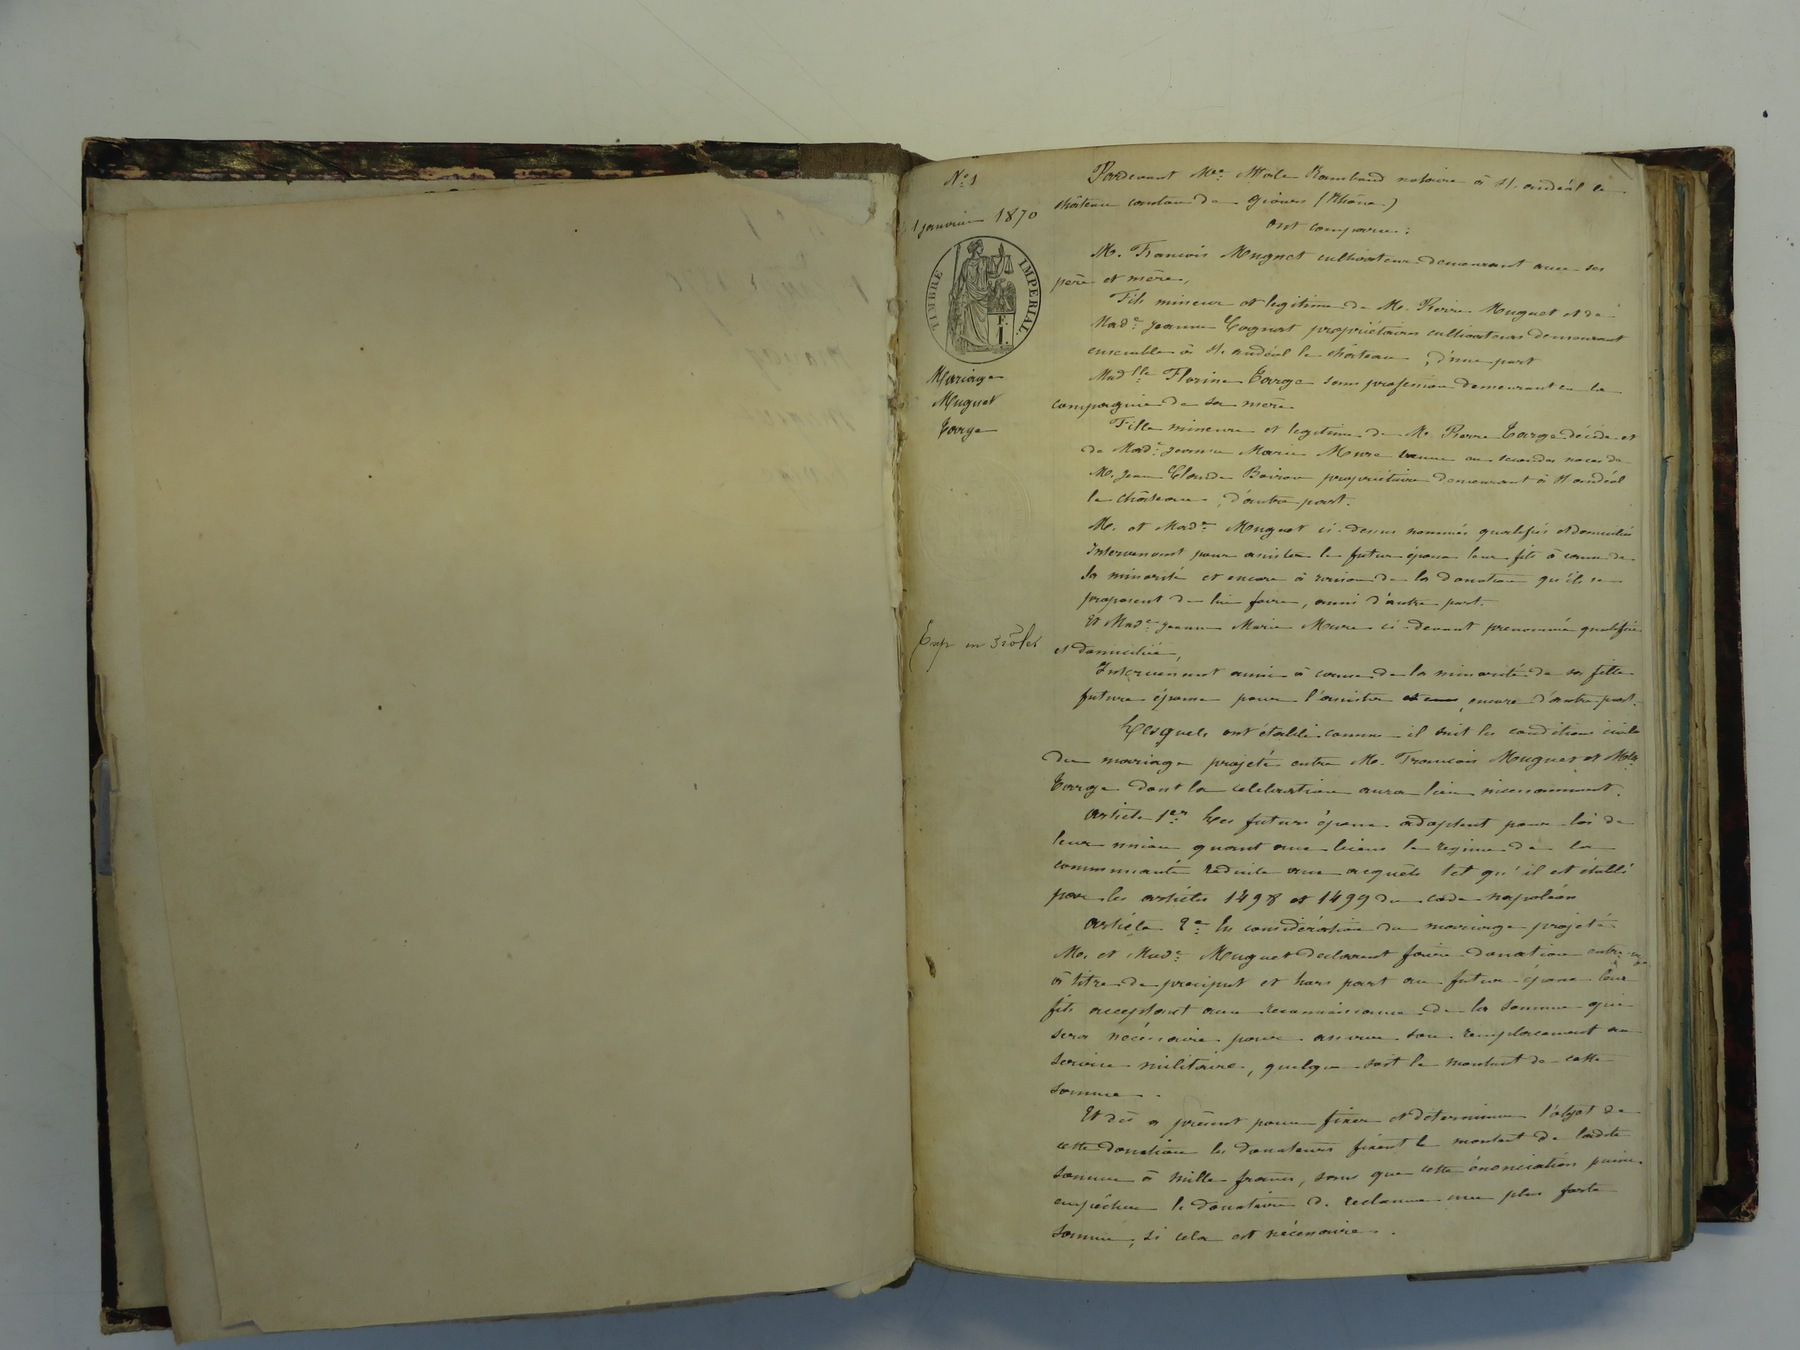 N° 1
1 janvier 1870
TIMBRE IMPERIAL.
F.
1.
Mariage
Muguet
Targe
Exp en 3 rôles
Pardevant Me Rambaud notaire à St. andéol le
château canton de givors (Rhône)
Ont comparu :
M. Francois Muguet cultivateur demeurant avec ses
père et mère,
Fils mineur et legitime de M. Pierre Muguet et de
Made Jeanne propriétaires cultivateurs demeurant
ensemble à St. andéol le château, d'une part
Madlle Florine Targe sans profession demeurant en la
compagnie de sa mère
Fille mineure et legitime de M. Pierre Targe décédé et
de Made Jeanne Marie Mure en secondes noces de
M. Jean Claude Boiron propriétaire demeurant à St andéol
le château, d'autre part.
M. et Made Muguet ci-dessus nommés qualifiés et domiciliés
Intervenant pour assister le futur époux leur fils à cause de
sa minorité et encore à raison de la donation qu'ils se
proposent de lui faire, aussi d'autre part.
Et Made Jeanne Marie Mure ci-devant prenommée qualifiée
et domiciliée,
Intervenant aussi à cause de la minorité de sa fille
future épouse pour l'assister encore d'autre part.
Lesquels ont établi comme il suit les conditions civiles
du mariage projeté entre M. Francois Muguet et Mlle
Targe dont la célébration aura lieu incessamment.
Article 1er Les futurs époux adoptent pour loi de
leur union quant aux biens le regime de la
communauté réduite aux acquêts tel qu'il est établi
par les articles 1498 et 1499 du code napoléon
Article 2e En considération du mariage projeté
M. et Made Muguet declarent faire donation entre vifs
à titre de préciput et hors part au futur époux leur
fils acceptant avec reconnaissance de la somme qui
sera nécessaire pour assurer son remplacement au
service militaire, quelque soit le montant de cette
somme.
Et dès à présent pour fixer et déterminer l'objet de
cette donation les donateurs fixent le montant de ladite
somme à mille francs, sans que cette énonciation puisse
empêcher le donataire de reclamer une plus forte
somme, si cela est nécessaire.